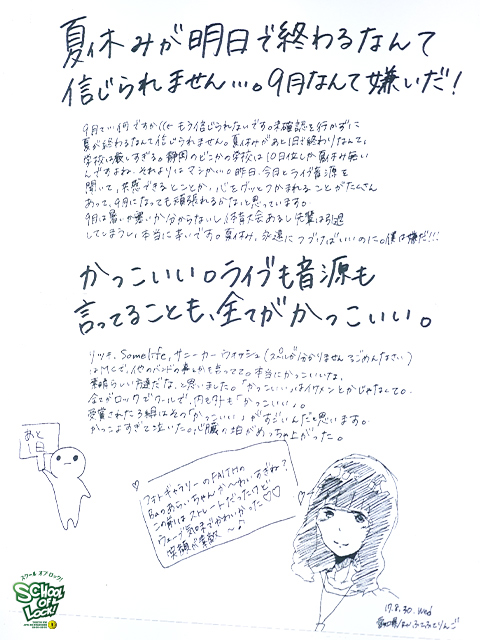 夏休みが明日で終わるなんて
信じられません…。9月なんて嫌いだ!
9月って何ですか(( もう信じられないです。未確認を行かずに
夏が終わるなんて信じられません。夏休みがあと1日で終わりなんて、
学校は厳しすぎる。静岡のどこかの学校は10日位しか夏休み無い
んですよね。それよりはマシかい。昨日、今日とライブ音源を
聞いて、共感できるとことか、心をグッとつかまれることがたくさん
あって、9月になっても頑張れるかなと思っています。
9月は暑いか寒いか分からないし、体育大会あるし先輩は引退
してしまうし、本当に辛いです。夏休み、永遠につづけばいいのに。僕は嫌だ!!!
かっこいい。ライブも音源も
言ってることも、全てがかっこいい。
リツキ、Somelife、サニーカーウォッシュ(スペルが分かりませんでごめんなさい)
はMCで、他のバンドの事しか言ってて。本当にかっこいいな、
素晴らしい先輩だな、と思いました。「かっこいい」はイケメンとかじゃなくて。
全てがロックでクールで、内も外も「かっこいい」。
受賞された3組はその「かっこいい」がすごいんだと思います。
かっこよすぎて泣いた。心臓の拍がめっちゃ上がった。
あと
1日
フォトギャラリーのFAITHの
Baのあらいちゃんか〜わいすぎね?
この前はストレートだったけど
ウェーブ気味でかわいかった♡♡
笑顔が素敵〜♪
17.8.30.wed
スクール オブ ロック!
SCHOOL OF LOCK!